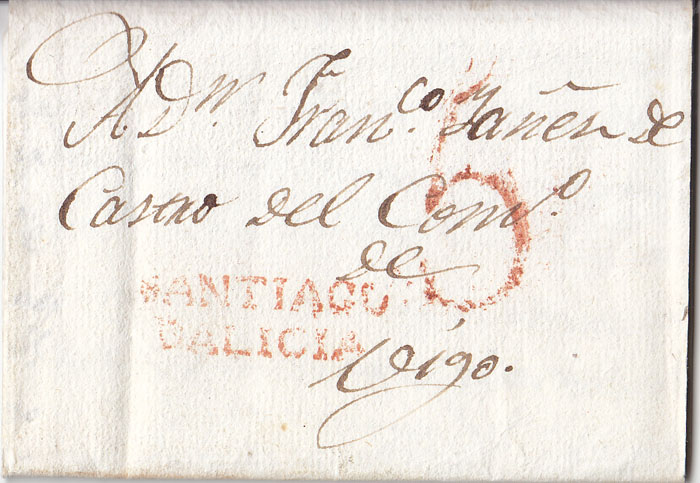 A Dn. Franco. Yañez de
Castro del Como.
de
Vigo.
5
SANTIAGO
GALICIA